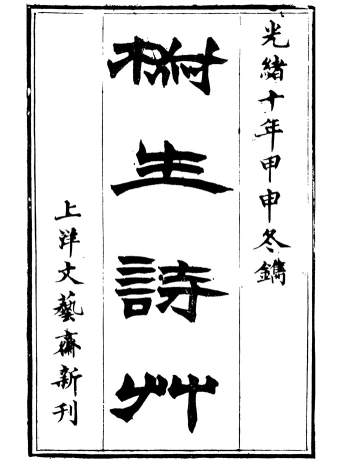 光緒十年甲申冬鐫
生詩艸
上洋文藝齋新刊